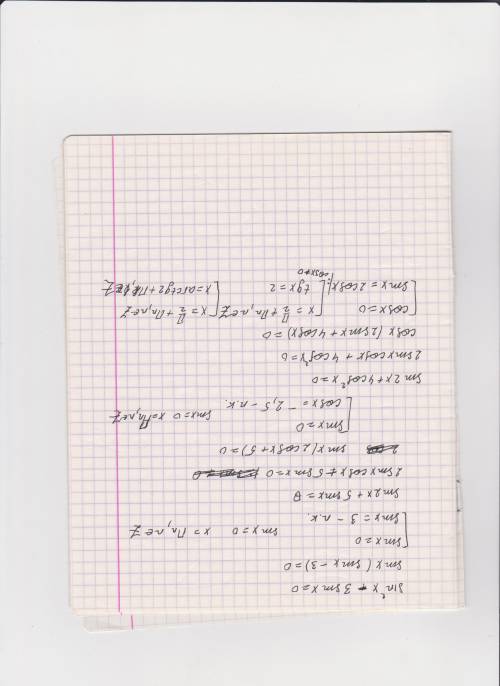 sin²x - 3 sinx = 0
sinx (sinx - 3) = 0
[ sinx = 0
[ sinx = 3 - п.к. sinx = 0 x = Пn, n∈Z
sin2x + 5 sinx = 0
2 sinx cosx + 5 sinx = 0
sinx (2cosx + 5) = 0
[ sinx = 0
[ cosx = - 2,5 - п.к. sinx = 0 x = Пn, n∈Z
sin 2x + 4cos²x = 0
2 sinx cosx + 4 cos²x = 0
cosx (2 sinx + 4cosx) = 0
[ cosx = 0 [ x = П/2 + Пn, n∈Z [ x = П/2 + Пn, n∈Z
[ sinx = 2cosx |: cosx≠0 [ tgx = 2 [ x = arctg2 + Пk, k∈Z